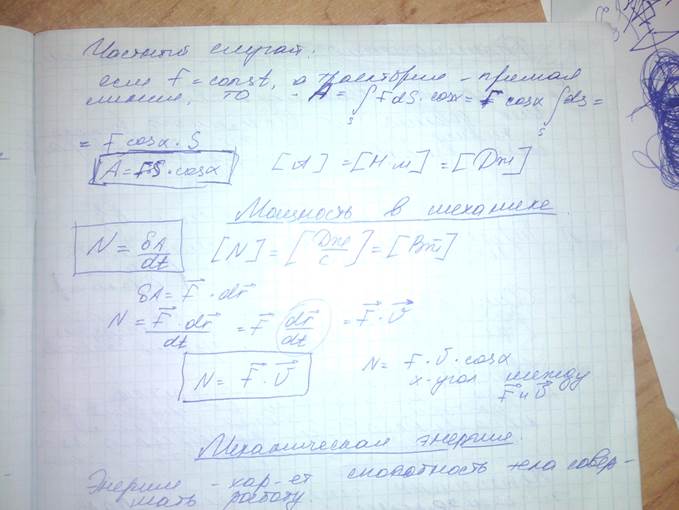 Частный случай.
если F = const, а траектория - прямая
линия, то A = ∫ F dS · cosα = F cosα ∫ ds =
= F cosα · S
A = F·S · cosα
[A] = [Н м] = [Дж]
Мощность в механике
N = δA/dt [N] = [Дж/с] = [Вт]
δA = F⃗ · dr⃗
N = F⃗ · dr⃗/dt = F⃗ dr⃗/dt = F⃗ · v⃗
N = F⃗ · v⃗
N = F · v · cosα
α - угол между
F⃗ и v⃗
Механическая энергия.
Энергия - хар-ет способность тела совер-
шать работу